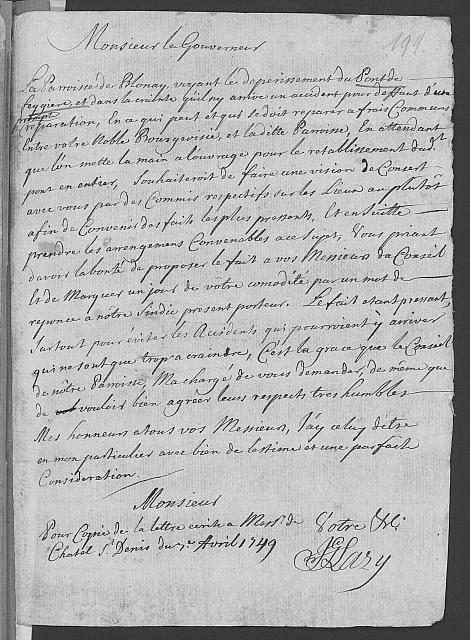 194
Monsieur le Gouverneur
La Parroisse de Blonay, voyant le deperissement du Pont de
feygiere, et dans la crainte qu'il n'y arrive un accident pour deffaut d'une
prompte
reparation, En ce qui peut et qui se doit reparer a frais Communs
Entre votre Noble Bourgeoisie, et la ditte Parroisse, En attendant
que l'on mette la main a l'ouvrage pour le retablissement dudt
pont en entier, Souhaiteroit de faire une vision de Consert
avec vous par des Commis respectifs sur les Lieux au plutôt
afin de Convenir des faits les plus pressents, Et ensuitte
prendre les arrengemens Convenables a ce Sujet, Vous priant
d'avoir la bonté de proposer le fait a vos Messieurs du Conseil
et de Marquer un jour de votre comodité par un mot de
reponce a nôtre Sindic present porteur. Le fait etant pressant,
Surtout pour éviter les Accidents qui pourroient y arriver
qui ne sont que trop a craindre, C'est la grace que le Conseil
de nôtre Parroisse, Ma chargé de vous demander, de meme que
de vouloir bien agréer leurs respects tres humbles
Mes honneurs a tous vos Messieurs, J'ay celuy d'etre
en mon particulier avec bien de lestime et une parfaite
Consideration.
Monsieur
Pour Copie de la lettre ecrite a Messrs. de
Votre
Chatel St. Denis du 7e Avril 1749